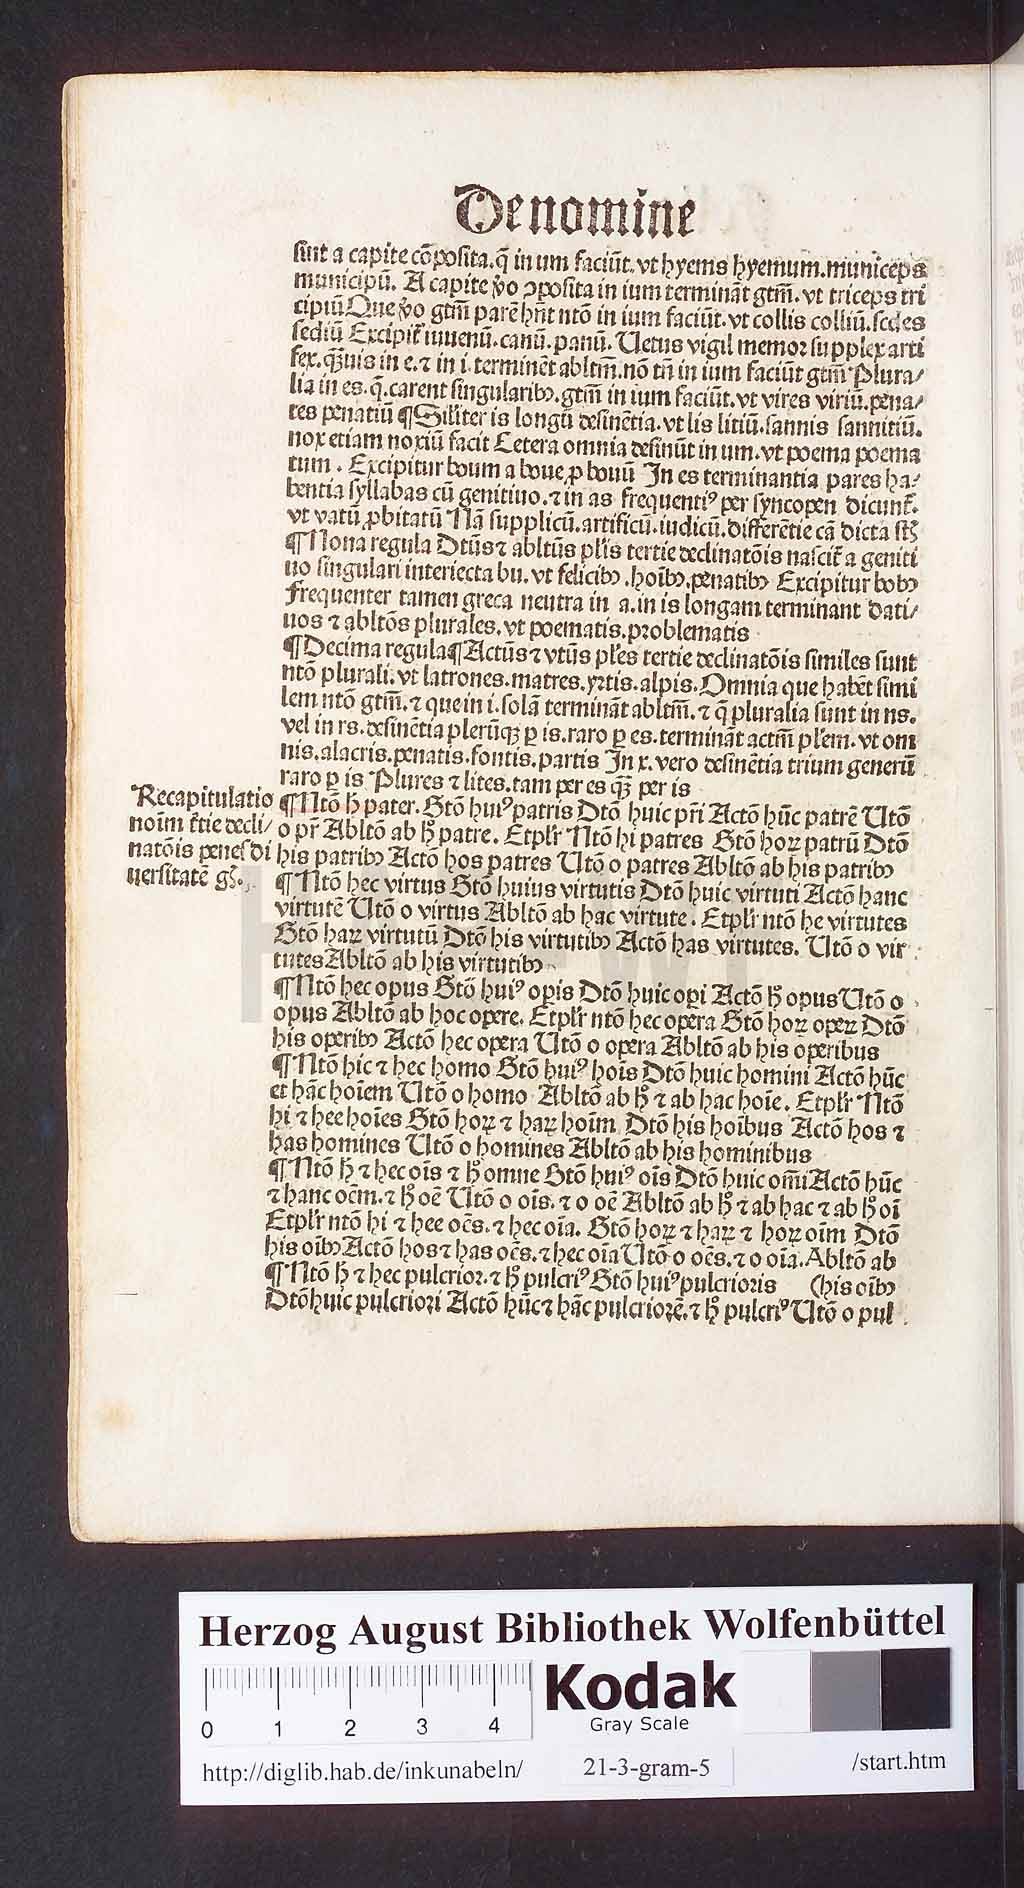 De nomine
sunt a capite cōposita. q̄ in um faciūt. vt hyems hyemum. municeps
municipū. A capite ꝟo ↄposita in ium terminãt gtm̄. vt triceps tri
cipiū Que ꝟo gtm̄ parē hn̄t ntō in ium faciūt. vt collis colliū. sedes
sediū Excipit᷑ iuuenū. canū. panū. Uetus vigil memor supplex arti
fex. q̄uis in e. ⁊ in i. terminēt abltm̄. nō tn̄ in ium faciūt gtm̄ Plura⸗
lia in es. q̄. carent singularibꝫ. gtm̄ in ium faciūt. vt vires viriū. pena⸗
tes penatiū ¶ Siĺiter is longū desinētia. vt lis litiū. sannis sannitiū.
nox etiam noxiū facit Cetera omnia desinūt in um. vt poema poema
tum. Excipitur boum a boue ꝓ bouū In es terminantia pares ha⸗
bentia syllabas cū genitiuo. ⁊ in as frequentiꝰ per syncopen dicunt᷑.
vt vatū ꝓbitatū Nã supplicū. artificū. iudicū. differētie cã dicta st̄
¶ Nona regula Dtūs ⁊ abltūs pĺis tertie declinatōis nascit᷑ a geniti
uo singulari interiecta bu. vt felicibꝫ. hoīibꝫ. penatibꝫ Excipitur bobꝫ
Frequenter tamen greca neutra in a. in is longam terminant dati⸗
uos ⁊ abltōs plurales. vt poematis. problematis
¶ Decima regula ¶ Actūs ⁊ vtūs pĺes tertie declinatōis similes sunt
ntō plurali. vt latrones. matres. yrtis. alpis. Omnia que habēt simi
lem ntō gtm̄. ⁊ que in i. solã terminãt abltm̄. ⁊ q̄ pluralia sunt in ns.
vel in rs. desinētia plerūqꝫ ꝑ is. raro ꝑ es. terminãt actm̄ pĺem. vt om
nis. alacris. penatis. fontis. partis In x. vero desinētia trium generū
raro ꝑ is Plures ⁊ lites. tam per es q̄ꝫ per is
Recapitulatio
noīm t᷑tie decli⸗
natōis penes di
uersitatē gn̄.
¶ Ntō hͦ pater. Gtō huiꝰ patris Dtō huic pr̄i Actō hūc patrē Utō
o pr̄ Abltō ab hͦ patre. Etpĺr Ntō hi patres Gtō hoꝝ patrū Dtō
his patribꝫ Actō hos patres Utō o patres Abltō ab his patribꝫ
¶ Ntō hec virtus Gtō huius virtutis Dtō huic virtuti Actō hanc
virtutē Utō o virtus Abltō ab hac virtute. Etpĺr ntō he virtutes
Gtō haꝝ virtutū Dtō his virtutibꝫ Actō has virtutes. Utō o vir
tutes Abltō ab his virtutibꝫ
¶ Ntō hec opus Gtō huiꝰ oꝑis Dtō huic oꝑi Actō hͦ opus Utō o
opus Abltō ab hoc opere. Etpĺr ntō hec opera Gtō hoꝝ opeꝝ Dtō
his operibꝫ Actō hec opera Utō o opera Abltō ab his operibus
¶ Ntō hic ⁊ hec homo Gtō huiꝰ hoīs Dtō huic homini Actō hūc
et hãc hoīem Utō o homo Abltō ab hͦ ⁊ ab hac hoīe. Etpĺr Ntō
hi ⁊ hee hoīes Gtō hoꝝ ⁊ haꝝ hoīm Dtō his hoībus Actō hos ⁊
has homines Utō o homines Abltō ab his hominibus
¶ Ntō hͦ ⁊ hec oīs ⁊ hͦ omne Gtō huiꝰ oīs Dtō huic om̄i Actō hūc
⁊ hanc oēm. ⁊ hͦ oē Utō o oīs. ⁊ o oē Abltō ab hͦ ⁊ ab hac ⁊ ab hͦ oī
Etpĺr ntō hi ⁊ hee oēs. ⁊ hec oīa. Gtō hoꝝ ⁊ haꝝ ⁊ hoꝝ oīm Dtō
his oībꝫ Actō hos ⁊ has oēs. ⁊ hec oīa Utō o oēs. ⁊ o oīa. Abltō ab
¶ Ntō hͦ ⁊ hec pulcrior. ⁊ hͦ pulcriꝰ Gtō huiꝰ pulcrioris (his oībꝫ
Dtō huic pulcriori Actō hūc ⁊ hãc pulcriorē. ⁊ hͦ pulcriꝰ Utō o pul
HAB WF
Herzog August Bibliothek Wolfenbüttel
0 1 2 3 4
Kodak
Gray Scale
http://diglib.hab.de/inkunabeln/ 21-3-gram-5 /start.htm